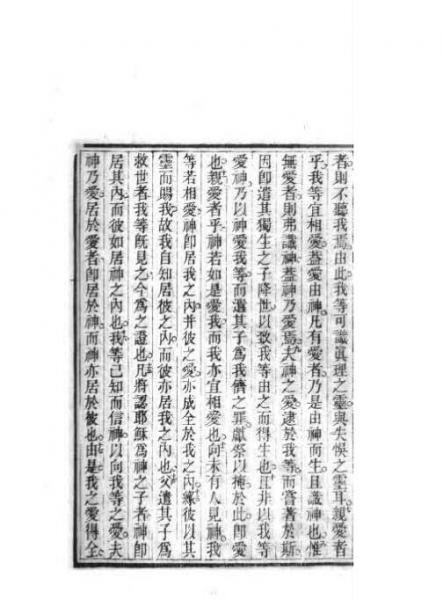 者則不聽我焉由此我等可識眞理之靈與失悞之靈耳親愛者
乎我等宜相愛蓋愛由神凡有愛者乃是由神而生且識神也惟
無愛者則弗識神蓋神乃愛焉夫神之愛逮於我等而嘗著於斯
因卽遣其獨生之子降世以致我等由之而得生也且非以我等
愛神乃以神愛我等而遣其子爲我儕之罪獻祭以掩於此卽愛
也親愛者乎神若如是愛我而我亦宜相愛也向未有人見神我
等若相愛神卽居我之內并彼之愛亦成全於我之內緣彼以其
靈而賜我故我自知居彼之內而彼亦居我之內也父遣其子爲
救世者我等旣見之今爲之證也凡將認耶穌爲神之子者神卽
居其內而彼如居神之內也我等已知而信神以向我等之愛夫
神乃愛居於愛者卽居於神而神亦居於彼也由是我之愛得全